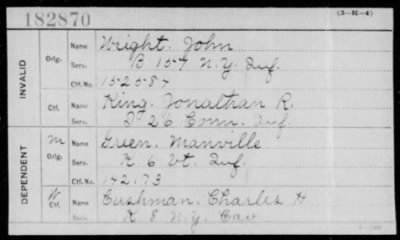 182870
(3-M-4)
INVALID
Orig.
Name Wright. John
Serv. B 157 N.Y. Inf.
Ctf. No. 152587
Ctf.
Name King, Jonathan R.
Serv. 26 Conn. Inf.
DEPENDENT
M
Orig.
Name Green. Manville
Serv. K 6 Vt. Inf.
Ctf. No. 142173
W
Ctf.
Name Cushman. Charles H.
Serv. K 8 N.Y. Cav.